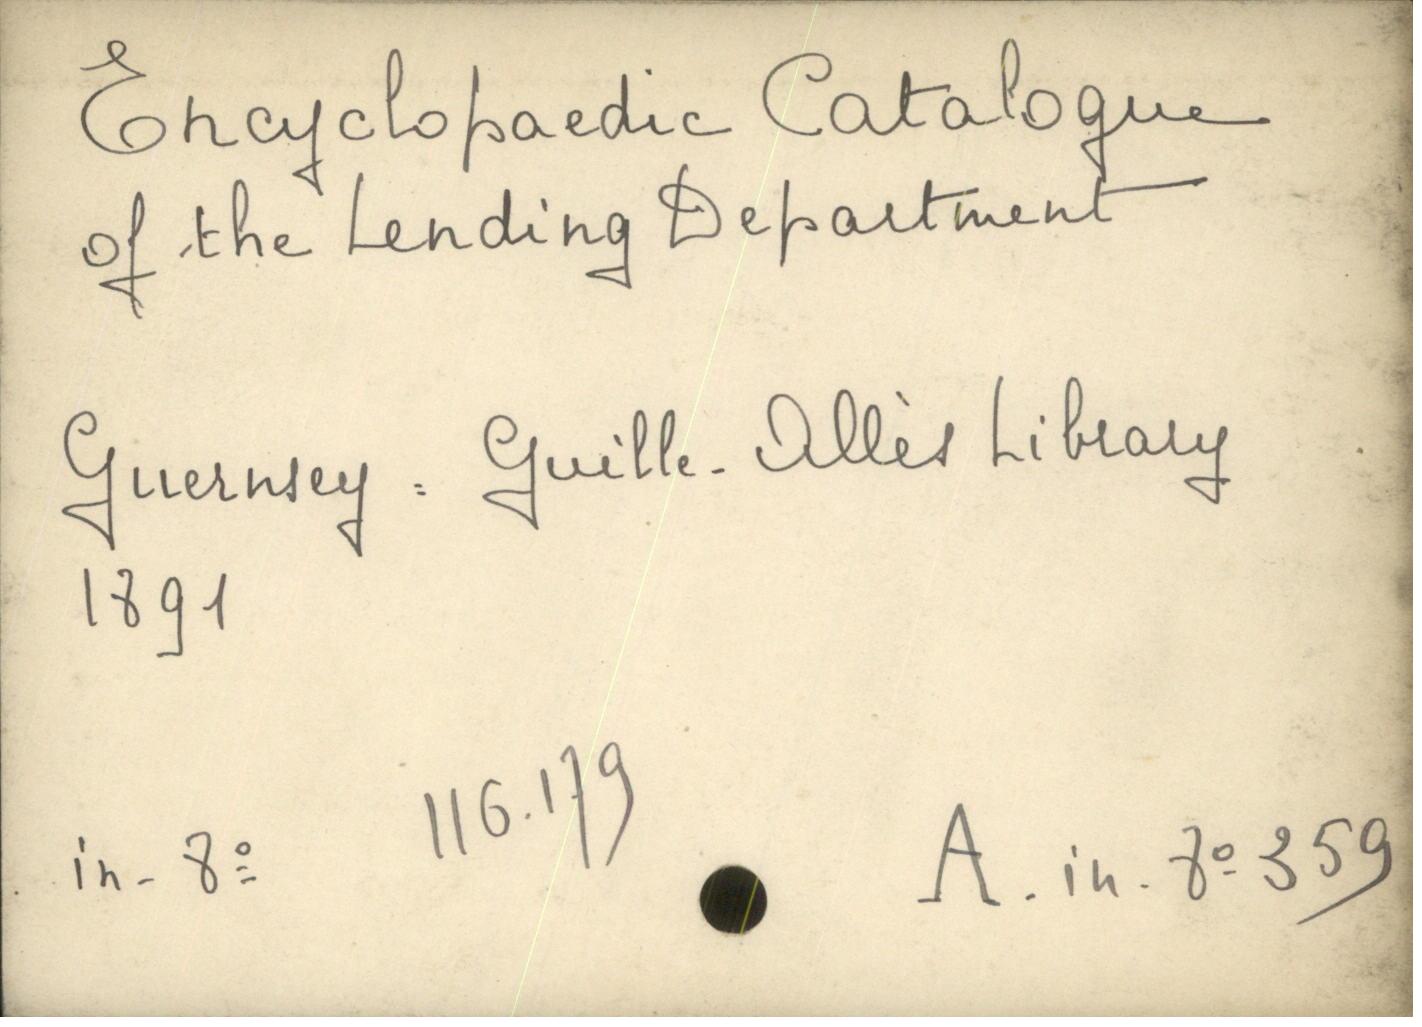 Encyclopaedic Catalogue
of the Lending Department
Guernsey = Guille-Allès Library
1891
in-8º
116.179
A. in-8º 359